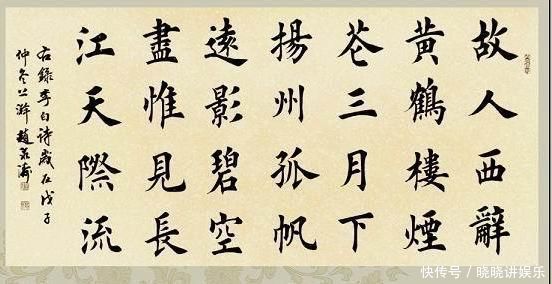 故人西辭
黄鶴樓煙
花三月下
揚州孤帆
遠影碧空
盡惟見長
江天際流
右錄李白诗歲在戊子
仲冬上澣趙
快传号 / 晓晓讲娱乐